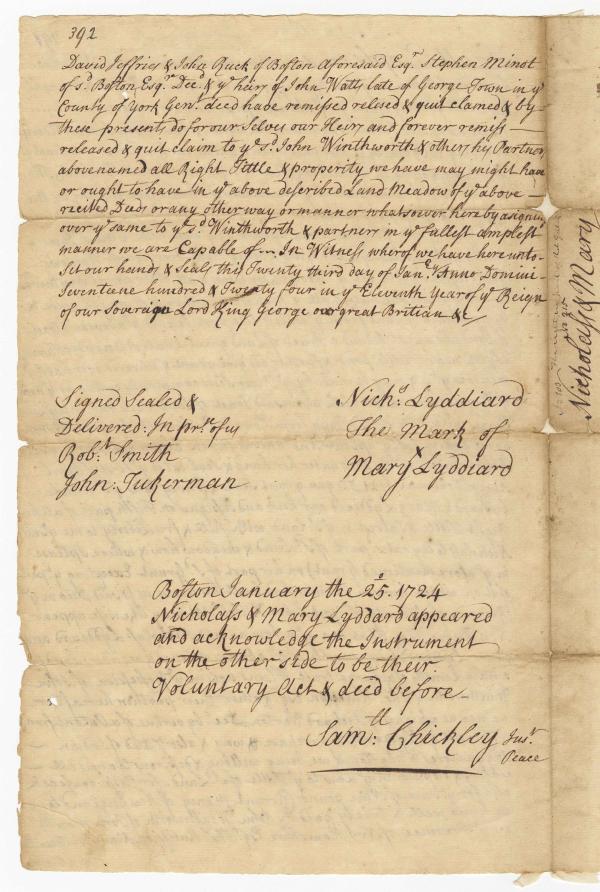 392
David Jeffries & John Ruck of Boston Aforesaid Esqr. Stephen Minot
of sd. Boston Esqr. Decd. & ye heirs of John Watts late of George Town in ye
County of York Genr. deed have remissed relesed & quit claimed & by
these presents do for our selves our Heirs and forever remiss
released & quit claim to ye sd. John Winthworth & others his Partners
above named all Right Tittle & properity we have may might have
or ought to have in ye above described Land Meadow of ye above
recited Deeds or any other way or manner whatsoever here by asigning
over ye same to ye sd. Winthworth & partners in ye fullest amplest
manner we are Capable of ... In Witness whereof we have here unto
Set our hands & Seals this Twenty third day of Jany. Anno Domini
Seventeene hundred & Twenty four in ye Eleventh Year of ye Reign
of our Sovereign Lord King George over great Britian &c
Signed Sealed &
Delivered: In prse. of us
Robt. Smith
John: Tukerman
Nichs. Lyddiard
The Mark of
Mary X Lyddiard
Boston January the 25. 1724
Nicholass & Mary Lyddard appeared
and acknowledge the Instrument
on the other side to be their
Voluntary Act & deed before
Samll: Chickley Just.
Peace
Nicholass & Mary